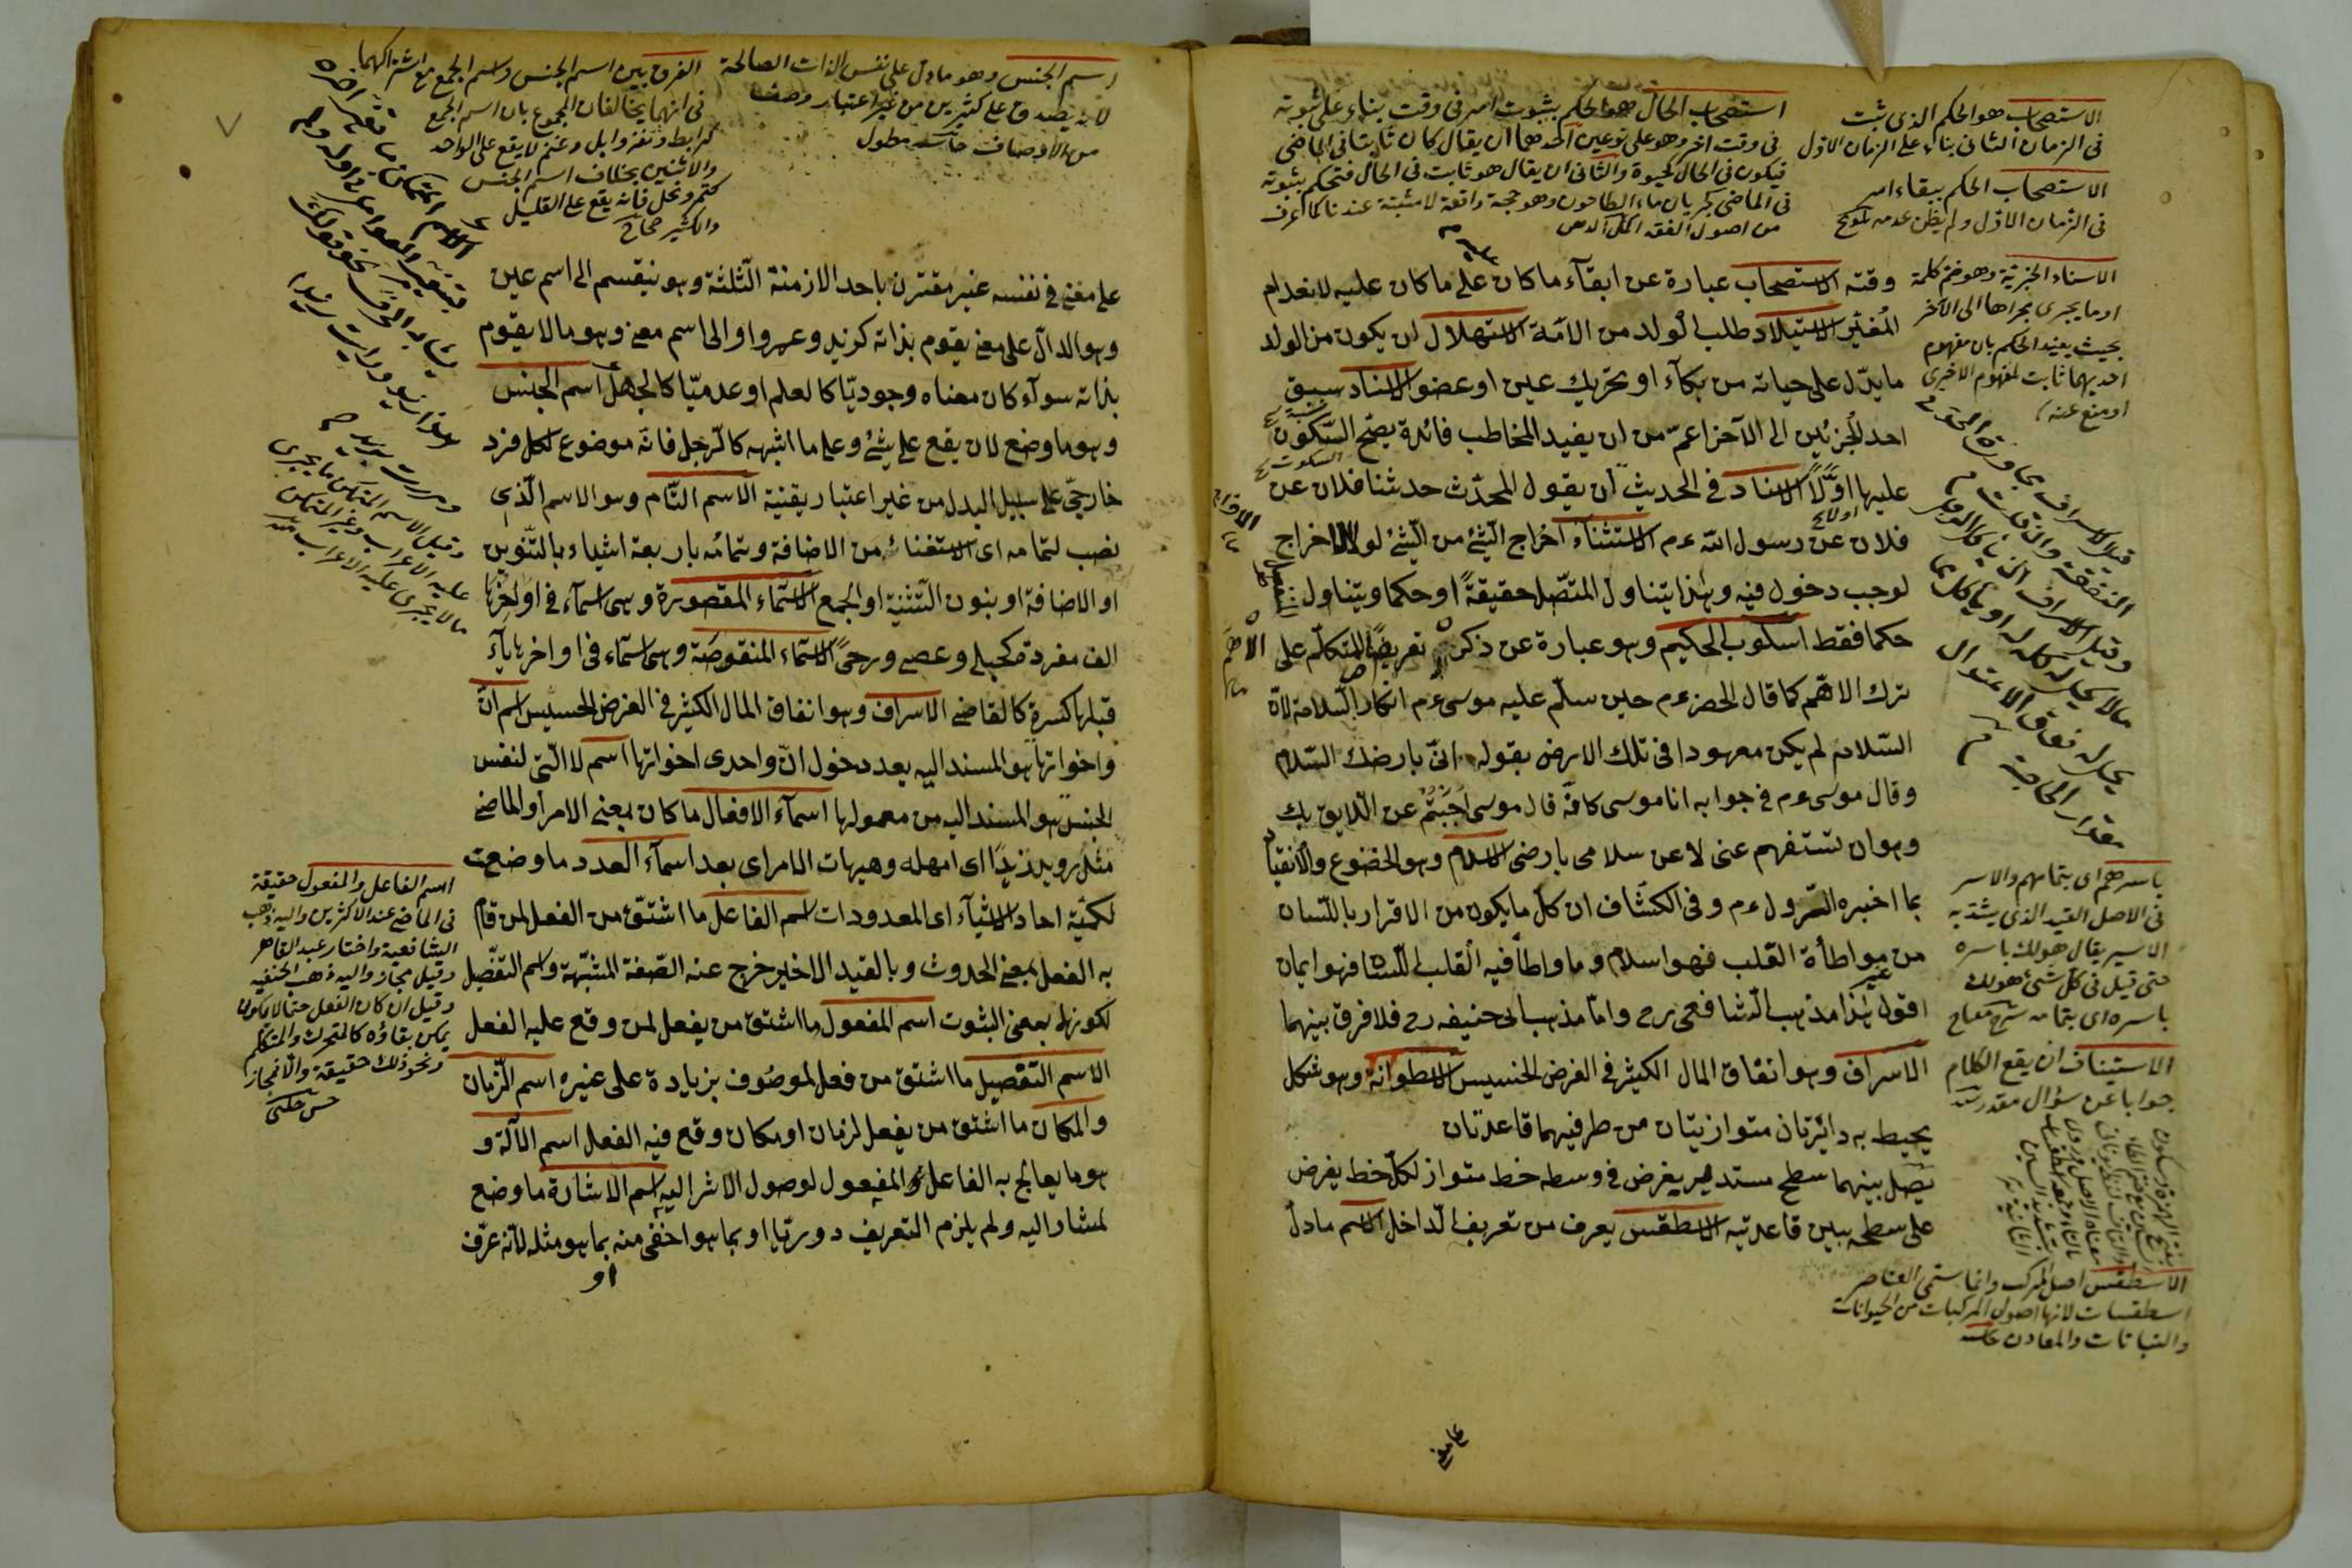 الاستصحاب هو الحكم الذى ثبت
فى الزمان الثانى بناء على الزمان الاول
الاستصحاب الحكم ببقاء امر
فى الزمان الاول ولم يظن عدمه تلويح
استصحاب الحال هو الحكم بثبوت امر فى وقت بناء على ثبوته
فى وقت اخر وهو على نوعين احدهما ان يقال كان ثابتا فى الماضى
فيكون فى الحال كحيوة والثانى ان يقال هو ثابت فى الحال فتحكم بثبوته
فى الماضى كجريان ماء الطاحون وهو حجة دافعة لا مثبتة عندنا كما عرف
من اصول الفقه
الاسناد الخبرية وهو ضم كلمة
او ما يجرى مجراها الى الآخر
بحيث يفيد الحكم بان مفهوم
احديهما ثابت لمفهوم الاخرى
او منع عنه
وقته الاستصحاب عبارة عن ابقآء ما كان على ما كان عليه لانعدام
المُغيّر الاستيلاد طلب الولد من الامَة الاستهلال ان يكون من الولد
ما يدّل على حياته من بكآء او تحريك عين او عضو الاسناد
احد الجزئين الى الآخر اعمّ من ان يفيد المخاطب فائدة يصّح السّكون
عليها اوّلاً الاسناد فى الحديث ان يقول المحدّث حدثنا فلان عن
فلان عن رسول الله عم الاستثنآء اخراج الشئ من الشئ لولا الاخراج
لوجب دخول فيه وهذا يتناول المتصّل حقيقةً او حكما ويتناول
حكما فقط اسلوب الحكيم وهو عبارة عن ذكر تعريضا للمتكلّم على
ترك الاهّم كما قال الخضر عم حين سلّم عليه موسى عم انكار السّلامه لانّ
السّلام لم يكن معهودا فى تلك الارض بقوله انّى بارضك السّلام
وقال موسى عم فى جوابه انا موسى كانّه قال موسى اَجَبْتُمُ عن اللّايق بك
وهو ان تستفهم عنى لا عن سلامى بارضى الاسلام وهو الخضوع والانقياد
بما اخبره الرّسول عم وفى الكشّاف ان كلّ ما يكون من الاقرار باللّسان
من غير مواطأة القلب فهو اسلام وما واطأ فيه القلب اللّسان فهو ايمان
اقول هذا مذهب الشافعى رح وامّا مذهب ابى حنيفه رح فلا فرق بينهما
الاسراف وهو انفاق المال الكثير فى الغرض الخسيس الاسطوانة وهو شكل
يحيط به دائرتان متوازيتان من طرفيهما قاعدتان
يتصل بينهما سطح مستدير يفرض فى وسطه خط متواز لكلّ خط يفرض
على سطحه بين قاعدتيه الاسطقس يعرف من تعريف الدّاخل الاسم ما دلّ
قيل الاسراف تجاوز الحد فى
النفقة
وقيل الاسراف ان ياكل الرجل
ما لا يحل له اكله او ياكل مما
يحل له فوق الاعتدال
مقدار الحاجة
باسرهم اى بتمامهم والاسر
فى الاصل القيد الذى يشد به
الاسير يقال هو لك باسره
حتى قيل فى كل شئ هو لك
باسره اى بتمامه شرح مفتاح
الاستيناف ان يقع الكلام
جوابا عن سؤال مقدر
الاسطقس اصل المركب وانما سمى العناصر
اسطقسات لانها اصول المركبات من الحيوانات
والنباتات والمعادن
على معنى
اسم الجنس وهو ما دل على نفس الذات الصالحة
لان يصدق على كثيرين من غير اعتبار وصف
من الاوصاف حاشية مطول
الفرق بين اسم الجنس واسم الجمع مع اشتراكهما
فى انهما يخالفان المجموع بان اسم الجمع
كرابط ونفر وابل وغنم لا يقع على الواحد
والاثنين بخلاف اسم الجنس
كتمر ونخل فانه يقع على القليل
والكثير
على معنى فى نفسه غير مقترن باحد الازمنة الثلثة وهو ينقسم الى اسم عين
وهو الدالّ على معنى يقوم بذاته كزيد وعمرو او الى اسم معنى وهو ما لا يقوم
بذاته سوآء كان معناه وجوديّا كالعلم او عدميّا كالجهل اسم الجنس
وهو ما وضع لان يقع على شئ وعلى ما اشبهه كالرّجل فانّه موضوع لكل فرد
خارجّى على سبيل البدل من غير اعتبار يقنية الاسم التّام وهو الاسم الّذى
نصب لتمامه اى الاستغناء من الاضافة وتمامُه باربعة اشياء بالتّنوين
او الاضافة او بنون التّثنية او الجمع الاسّماء المقصورة وهى اسمآء فى اواخرها
الف مفردة كحبلى وعصى ورحىً الاسمآء المنقوصَة وهى اسمآء فى اواخرها يآء
قبلها كسرة كالقاضى الاسراف وهو انفاق المال الكثير فى الغرض الخسيس اسم انّ
واخواتها هو المسند اليه بعد دخول انّ واحدى اخواتها اسم لا الّتى لنفس
الجنس هو المسند اليه من معمولها اسمآء الافعال ما كان بمعنى الامر او الماضى
مثل رويد زيدًا اى امهله وهيهات الامر اى بعد اسمآء العدد ما وضعت
لكميّة احاد الاشيآء اى المعدودات اسم الفاعل ما اشتقّ من الفعل لمن قام
به الفعل بمعنى الحدوث وبالقيد الاخير خرج عنه الصّفة المشبّهة واسم التفضيل
لكونها بمعنى الثبوت اسم المفعول ما اشتق من يفعل لمن وقع عليه الفعل
الاسم التفضيل ما اشتق من فعل لموصُوف بزيادة على غيره اسم الزّمان
والمكان ما اشتق من يفعل لزمان او مكان وقع فيه الفعل اسم الآلة و
هو ما يعالج به الفاعل المفعول لوصول الاثر اليه اسم الاشارة ما وضع
لمشار اليه ولم يلزم التعريف دوريّا او بما هو اخفى منه بما هو مثله لانّه عرّف
او
ومررت بزيد
وقيل الاسم المتمكن ما يجرى
عليه الاعراب وغير المتمكن
ما لا يجرى عليه الاعراب منه
اسم الفاعل والمفعول حقيقة
فى الماضى عند الاكثرين واليه ذهب
الشافعية واختار عبد القاهر
وقيل مجاز واليه ذهب الحنفيه
وقيل ان كان الفعل مما لا
يمكن بقاؤه كالمتحرك والمتكلم
ونحو ذلك حقيقة والا فمجاز
حسن چلبى